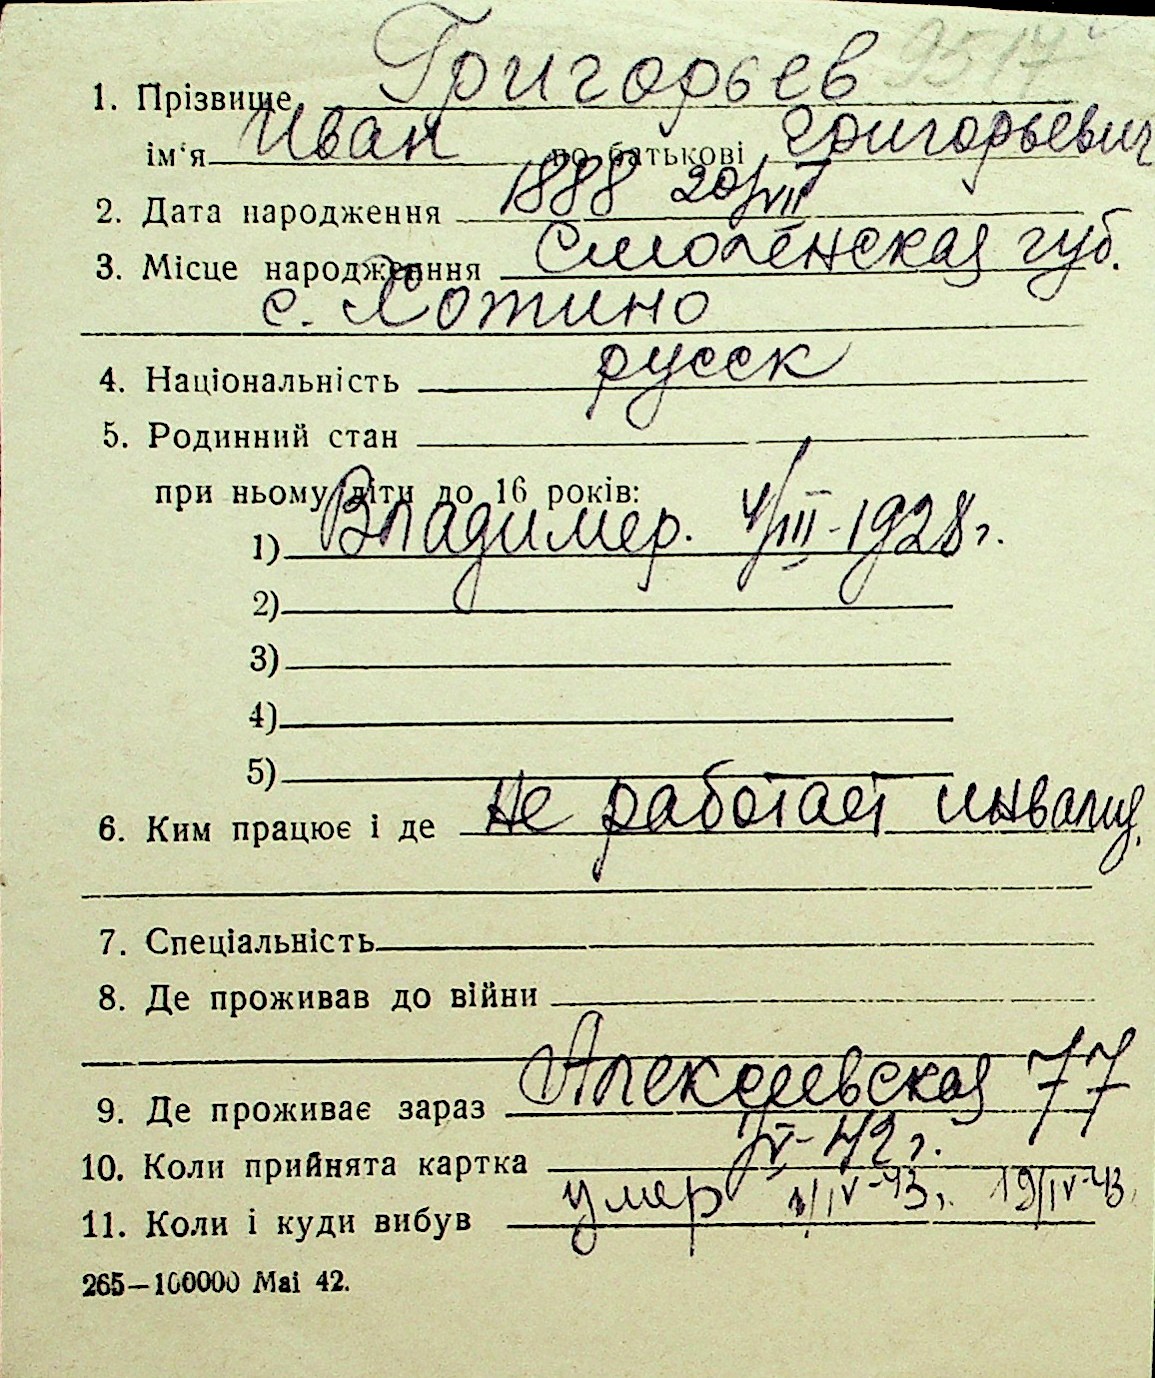 9517
1. Прізвище Григорьев
ім'я Иван по батькові Григорьевич
2. Дата народження 1888 20/VII
3. Місце народження Смоленская губ.
с. Хотино
4. Національність русск
5. Родинний стан
при ньому діти до 16 років:
1) Владимер. 4/III-1928 г.
2)
3)
4)
5)
6. Ким працює і де не работает инвалид.
7. Спеціальність
8. Де проживав до війни
9. Де проживає зараз Алексеевская 77
10. Коли прийнята картка V-42 г.
11. Коли і куди вибув умер /IV-43 г. 19/IV-43
265—100000 Mai 42.